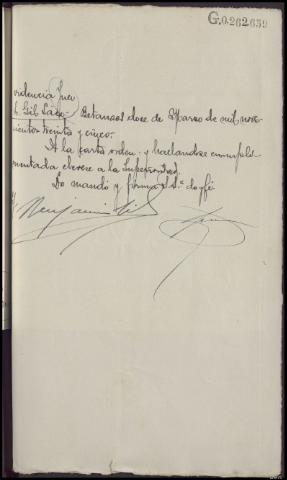 G.0.262.659
videncia Juez
S. Gil Sáez
Betanzos doce de Marzo de mil nove-
cientos treinta y cinco.
A la carta orden y hallandose cumpli-
mentada elevese a la Superioridad.
Lo mandó y firma S Sª doy fé
Benjamin Gil